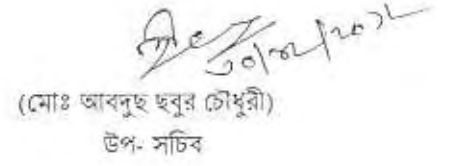 (মোঃ আবদুছ ছবুর চৌধুরী)
উপ- সচিব